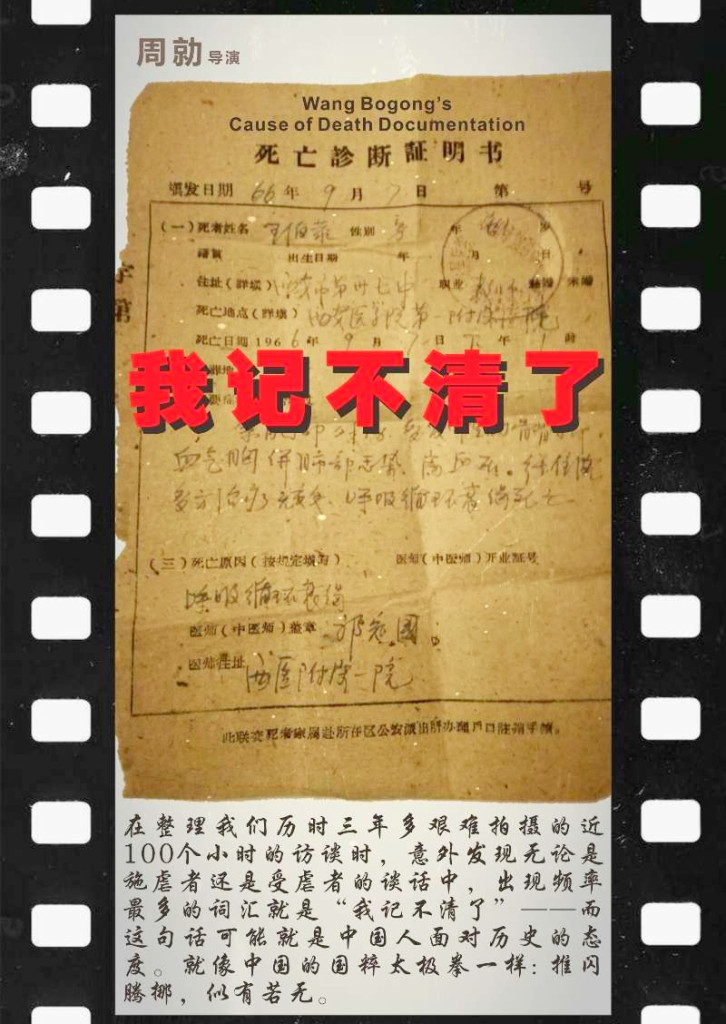 周勍导演
Wang Bogong's
Cause of Death Documentation
死亡診断証明书
填发日期 66年 9月 7日 第 号
(一)死者姓名 王伯恭 性别 男 年
籍貫 出生日期 年 月 日
住址(詳填) 西安市第卅七中 职业
死亡地点(詳填) 西安医学院第一附属医院
死亡日期 1966年 9月 7日 下 1时
我记不清了
血气胸併肺部感染,高血压。经住院
多方治疗无效,呼吸循环衰竭死亡
(三)死亡原因(按規定填写) 医师(中医师)开业証号
呼吸循环衰竭
医师(中医师)簽章
医师住址 西医附属一院
此联交死者家属赴所在区公安派出所办理戶口註銷手續。
在整理我们历时三年多艰难拍摄的近
100个小时的访谈时,意外发现无论是
施虐者还是受虐者的谈话中,出现频率
最多的词汇就是“我记不清了”——而
这句话可能就是中国人面对历史的态
度。就像中国的国粹太极拳一样:推闪
腾挪,似有若无。